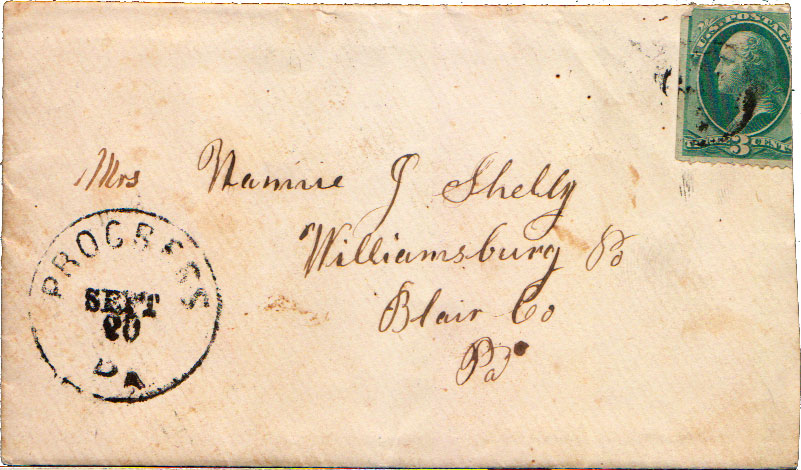 U.S. POSTAGE
3 CENTS
Mrs Nannie J Shelly
Williamsburg Po
Blair Co
Pa
PROGRESS
SEPT
20
PA